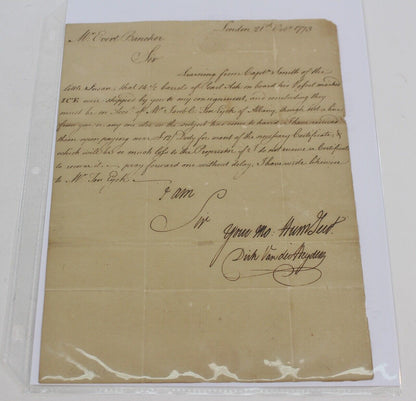 London 21st Novr 1773
Mr Evert Bancker
Sir
Learning from Captn Smith of the
little Susan, that 14 1/2 barrels of Pearl Ash on board his Vessel marked
were shipped by you to my consignment, and concluding they
must be on Accot of Mr Jacob C. Ten Eyck of Albany, though not a line
from you or any one else on the subject has come to hand I have entered
them upon paying Duty for want of the necessary Certificate, &
which will be so much loss to the Proprietor if I do not receive a Certificate
to recover it. pray forward one without delay, I have wrote likewise
to Mr Ten Eyck.
I am
Sir
Your mo. Hum Servt
Dirk Van der Heyden